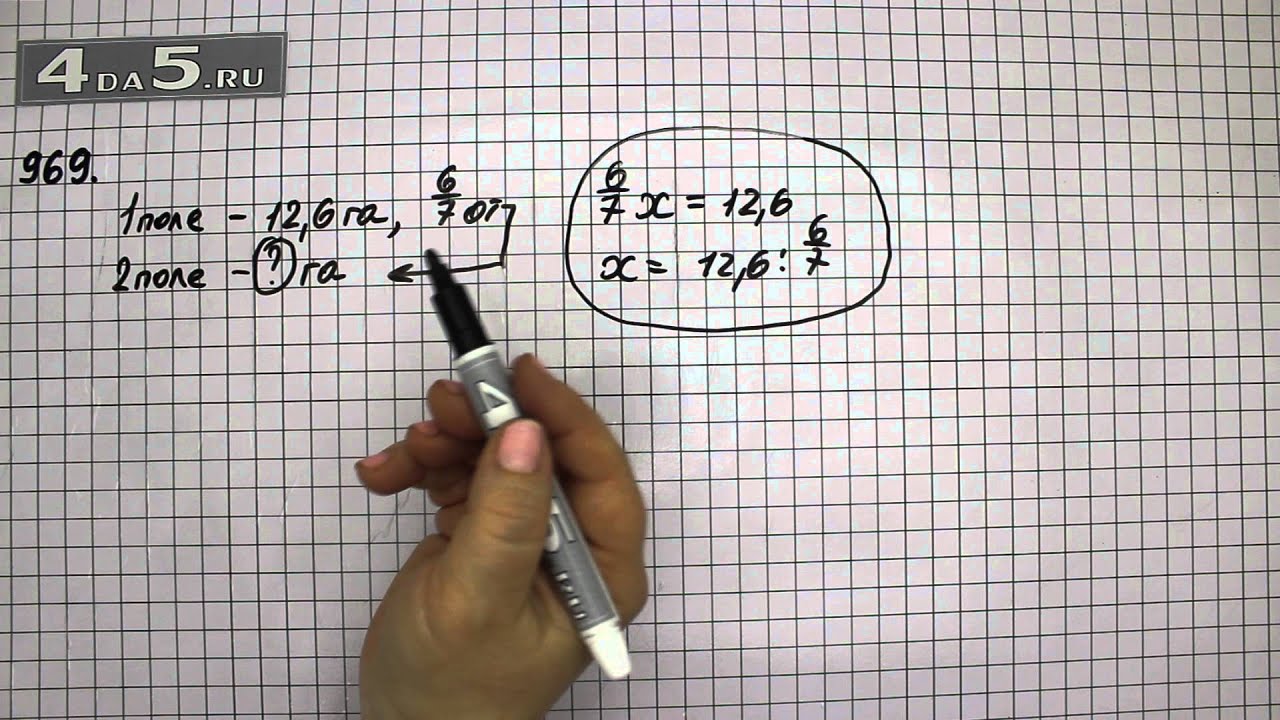 4DA5.RU
969.
1 поле - 12,6 га, 6/7 от
2 поле - ? га
6/7 x = 12,6
x = 12,6 : 6/7